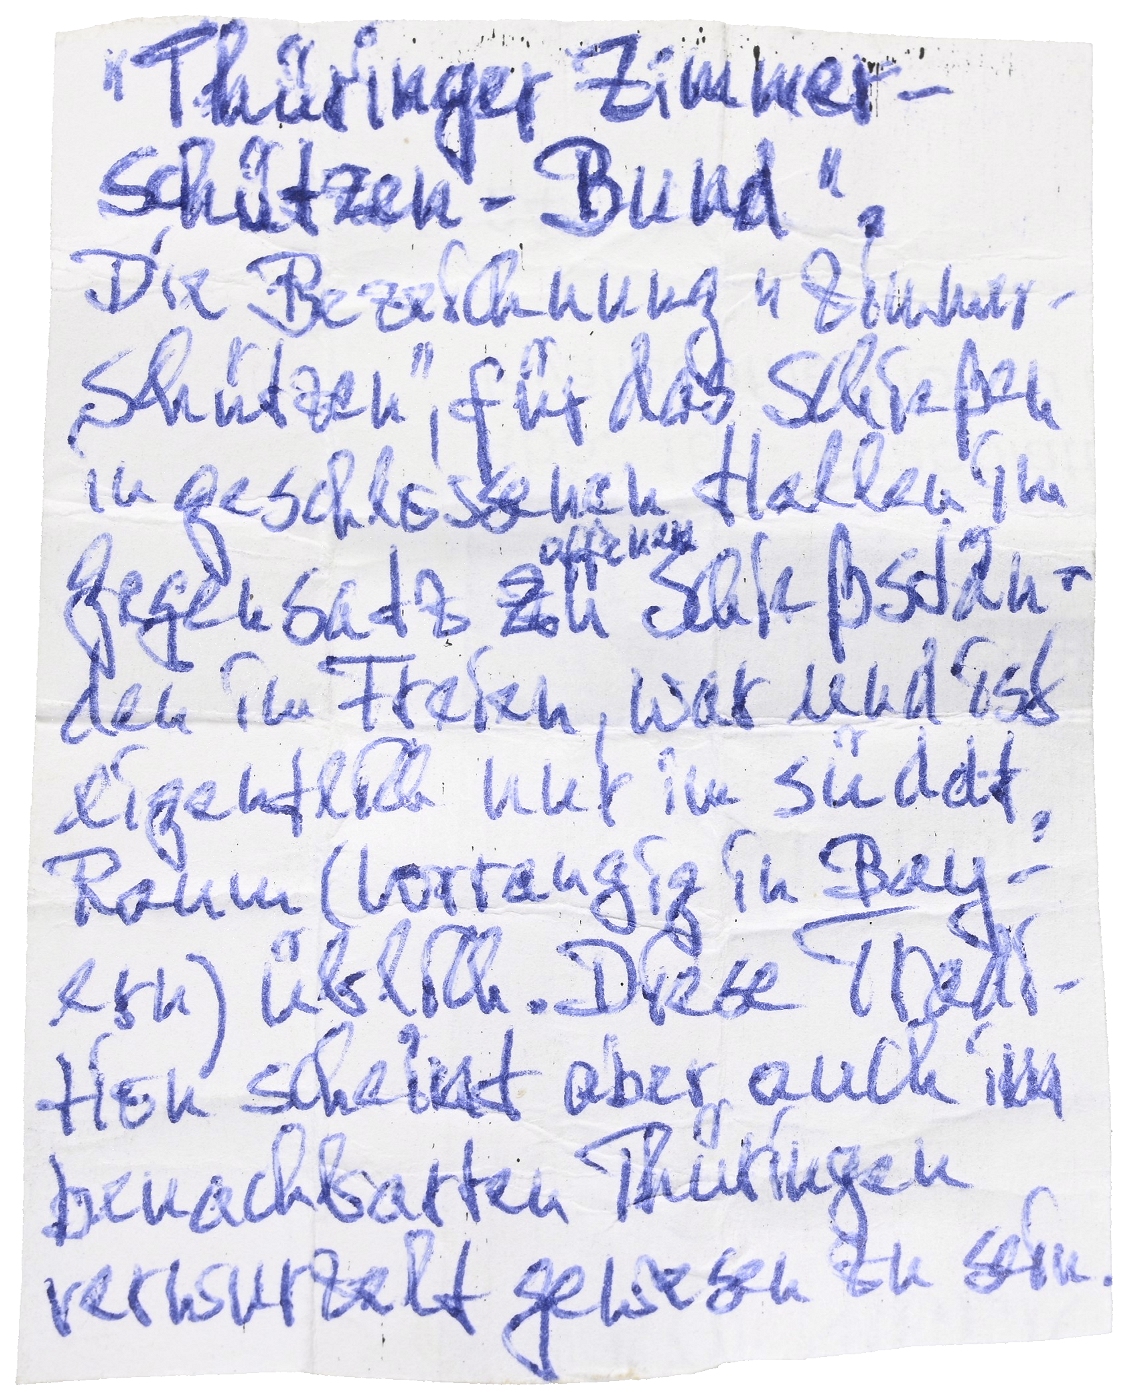 "Thüringer Zimmer-
schützen-Bund".
Die Bezeichnung "Zimmer-
schützen", für das Schießen
in geschlossenen Hallen im
Gegensatz zu offenen Schießstän-
den im Freien, war und ist
eigentlich nur im süddt.
Raum (vorrangig in Bay-
ern) üblich. Diese Tradi-
tion scheint aber auch im
benachbarten Thüringen
verwurzelt gewesen zu sein.